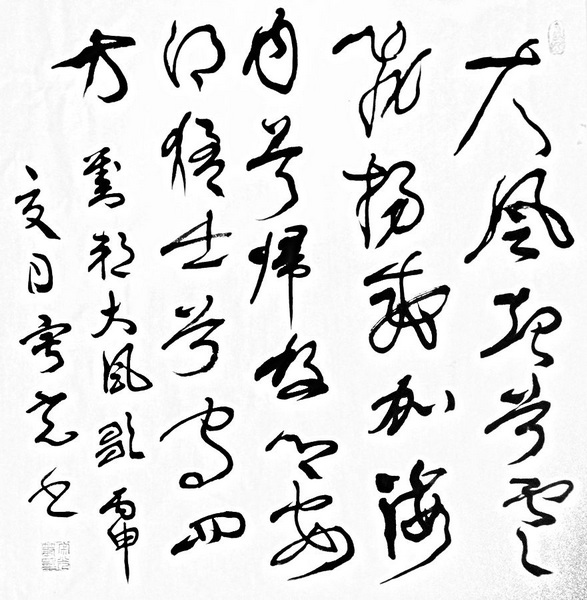 大風起兮雲
飛揚威加海
内兮歸故鄉安
得猛士兮守四
方 劉邦大風歌 丙申
夏日 书